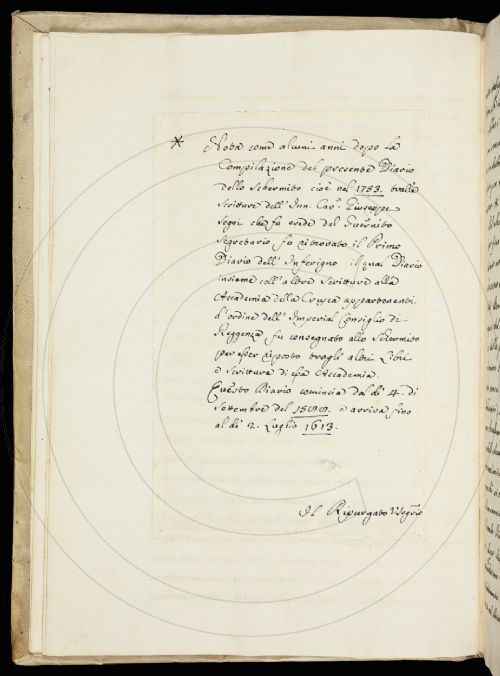 * Nota come alcuni anni dopo la
Compilazione del presente Diario
dello Schermito cioè nel 1753. tralle
Scritture dell' Inn. Cav.r Giuseppe
Segni che fu erede del Guernito
Segretario fu ritrovato il Primo
Diario dell' Inferigno il qual Diario
insieme coll' altre Scritture alla
Accademia della Crusca appartenenti
d'ordine dell' Imperial Consiglio di
Reggenza fu consegnato allo Schermito
per esser riposto tragli altri Libri
e Scritture di essa Accademia.
Questo Diario comincia dal dì 4. di
Settembre del e arriva fino
al dì 2. Luglio 1613.
Il Ripurgato